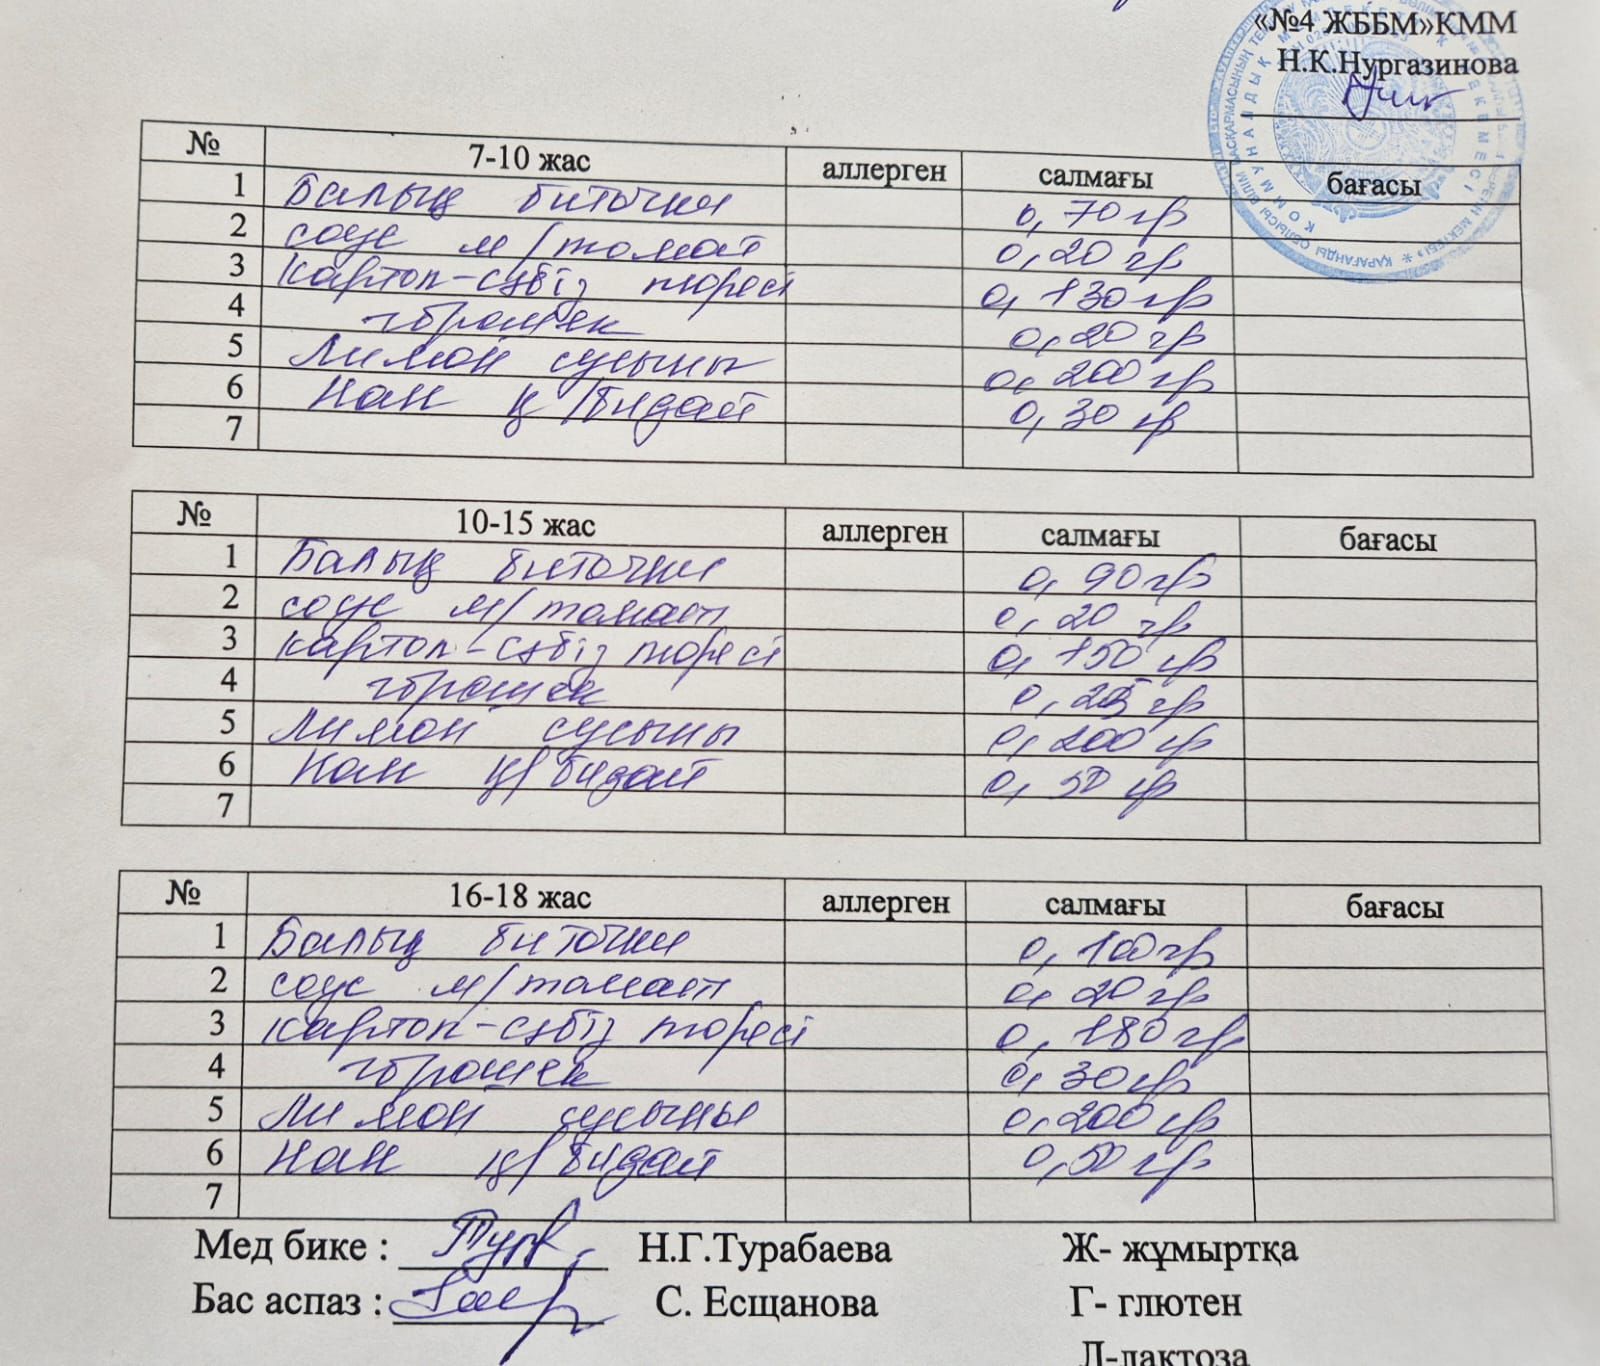 «№4 ЖББМ»КММ
Н.К.Нургазинова
№ 7-10 жас аллерген салмағы бағасы
1 Балық биточки 0,70гр
2 соус м/томат 0,20 гр
3 картоп-сәбіз пюресі 0,130гр
4 горошек 0,20 гр
5 Лимон сусыны 0,200 гр
6 Нан қ/бидай 0,30 гр
7
№ 10-15 жас аллерген салмағы бағасы
1 Балық биточки 0,90гр
2 соус м/томат 0,20 гр
3 картоп-сәбіз пюресі 0,150 гр
4 горошек 0,25 гр
5 Лимон сусыны 0,200 гр
6 Нан қ/бидай 0,50 гр
7
№ 16-18 жас аллерген салмағы бағасы
1 Балық биточки 0,100гр
2 соус м/томат 0,20 гр
3 картоп-сәбіз пюресі 0,180гр
4 горошек 0,30гр
5 Лимон сусыны 0,200 гр
6 Нан қ/бидай 0,50 гр
7
Мед бике : Н.Г.Турабаева Ж- жұмыртқа
Бас аспаз : С. Есщанова Г- глютен
Л-лактоза